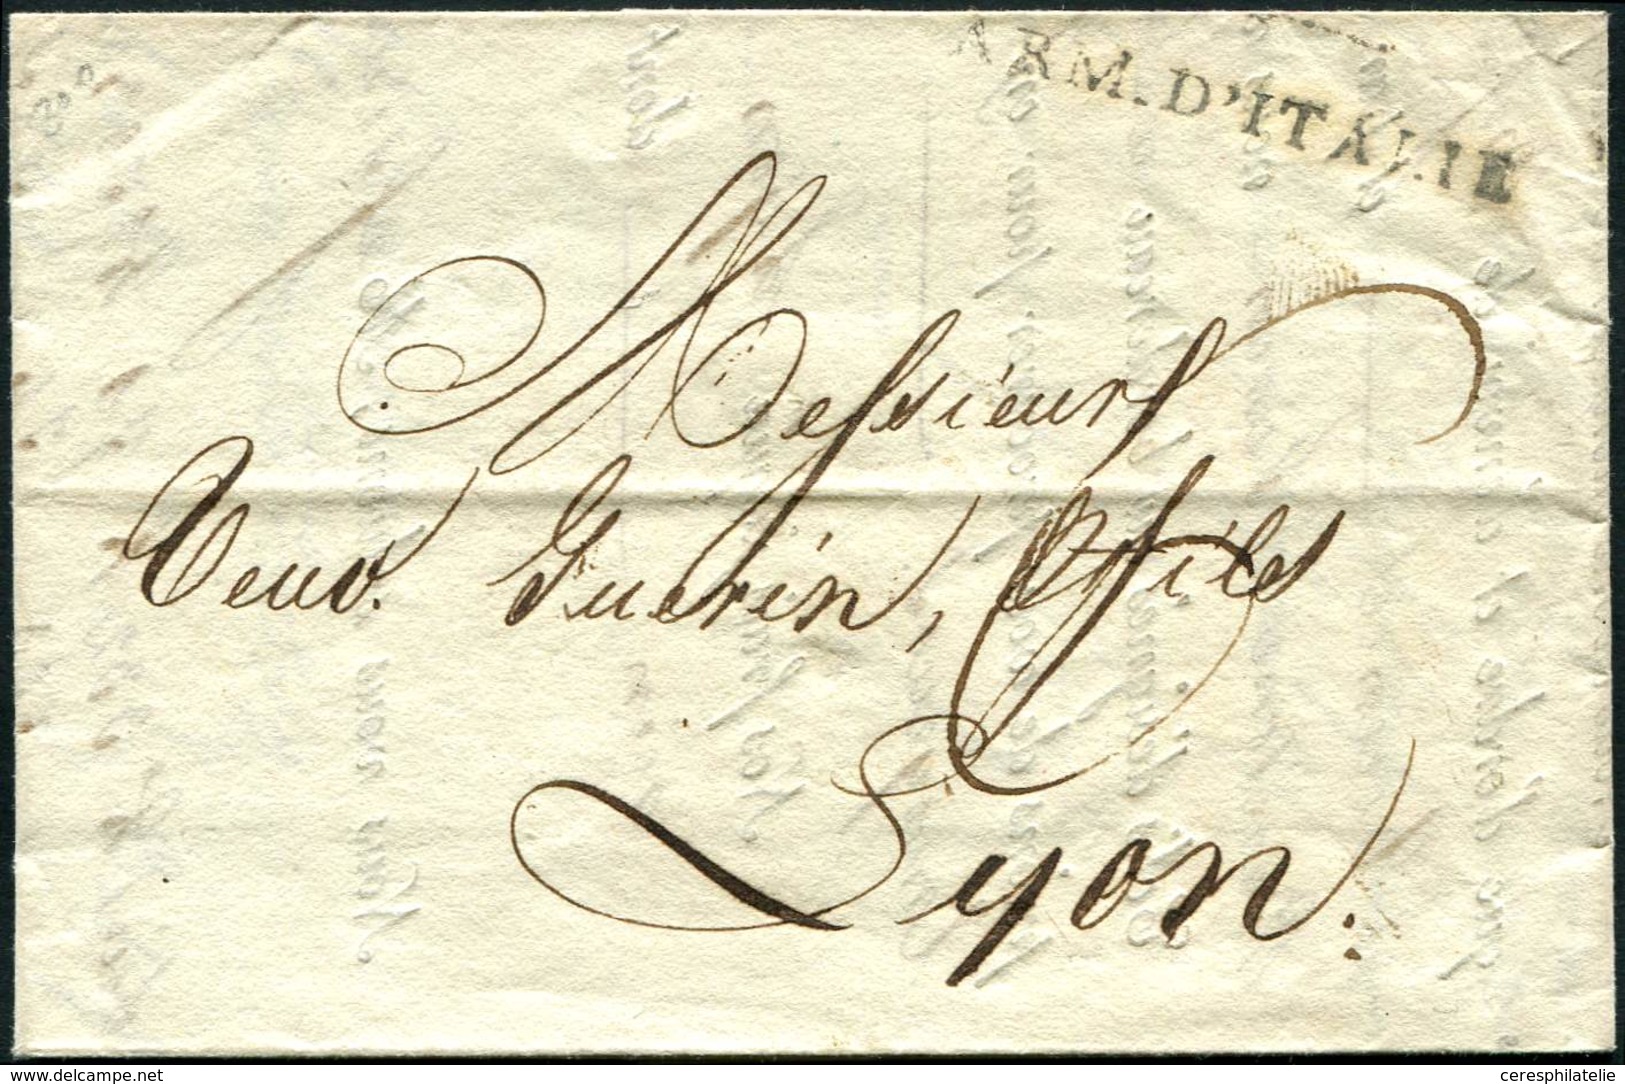 ARM. D'ITALIE
Messieurs
Veuv. Guérin, & fils
Lyon.
www.delcampe.net
ceresphilatelie